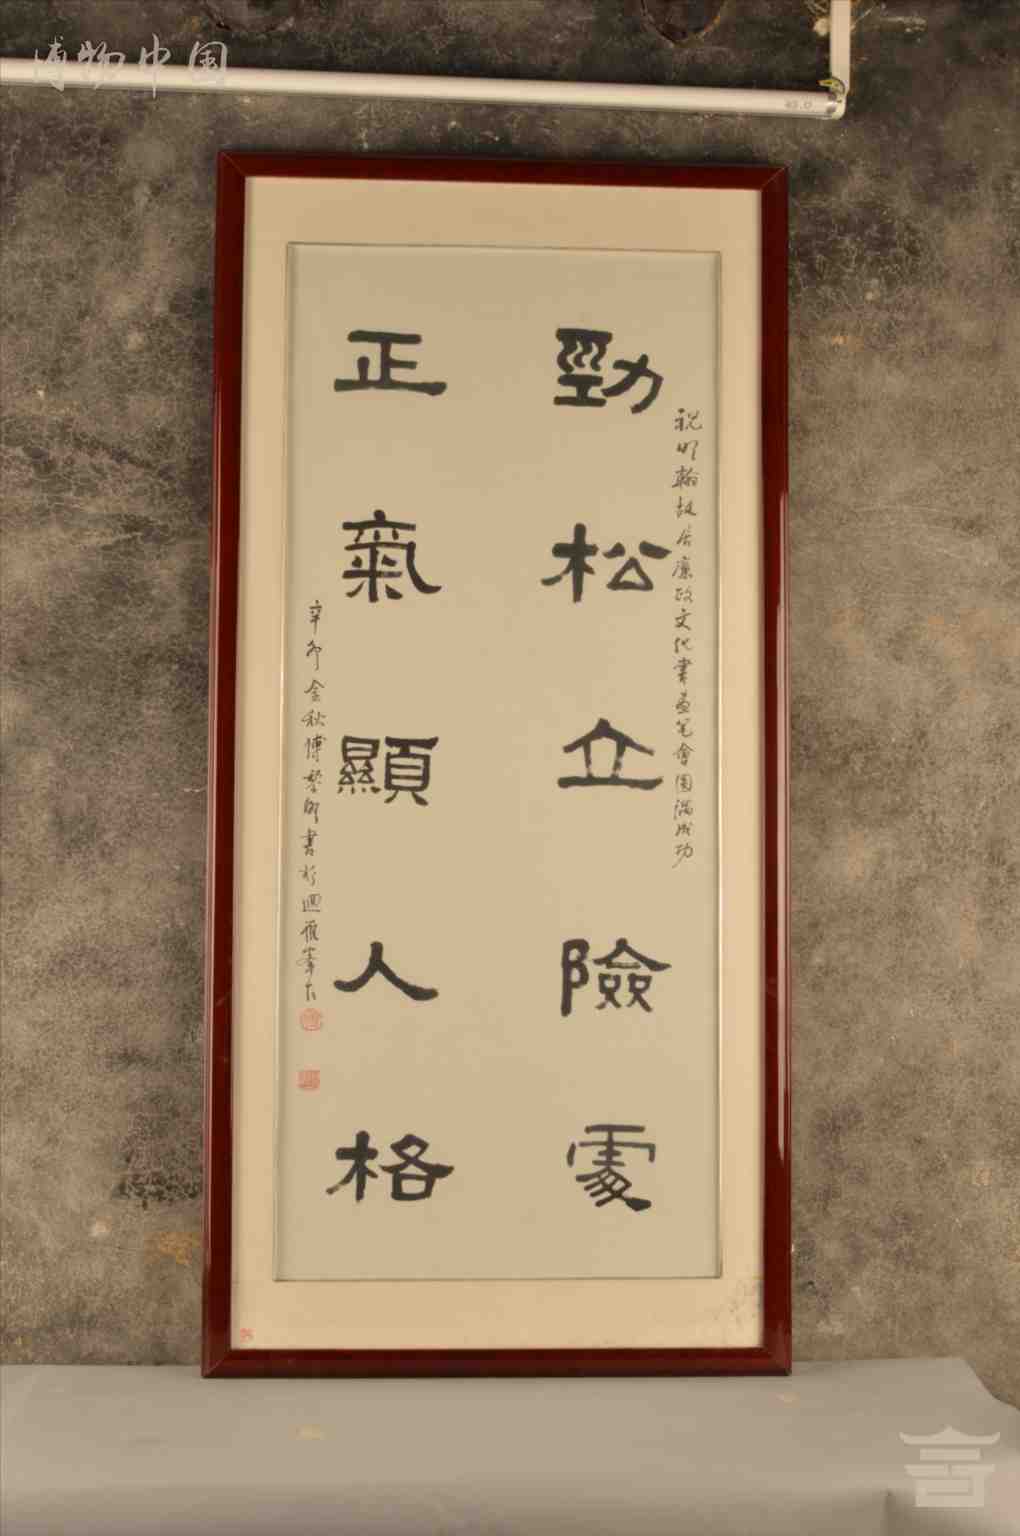 博物中国
祝明翰故居廉政文化書画笔會圓满成功
勁松立險處
正氣顯人格
辛卯金秋博黎明書於迴雁峯下